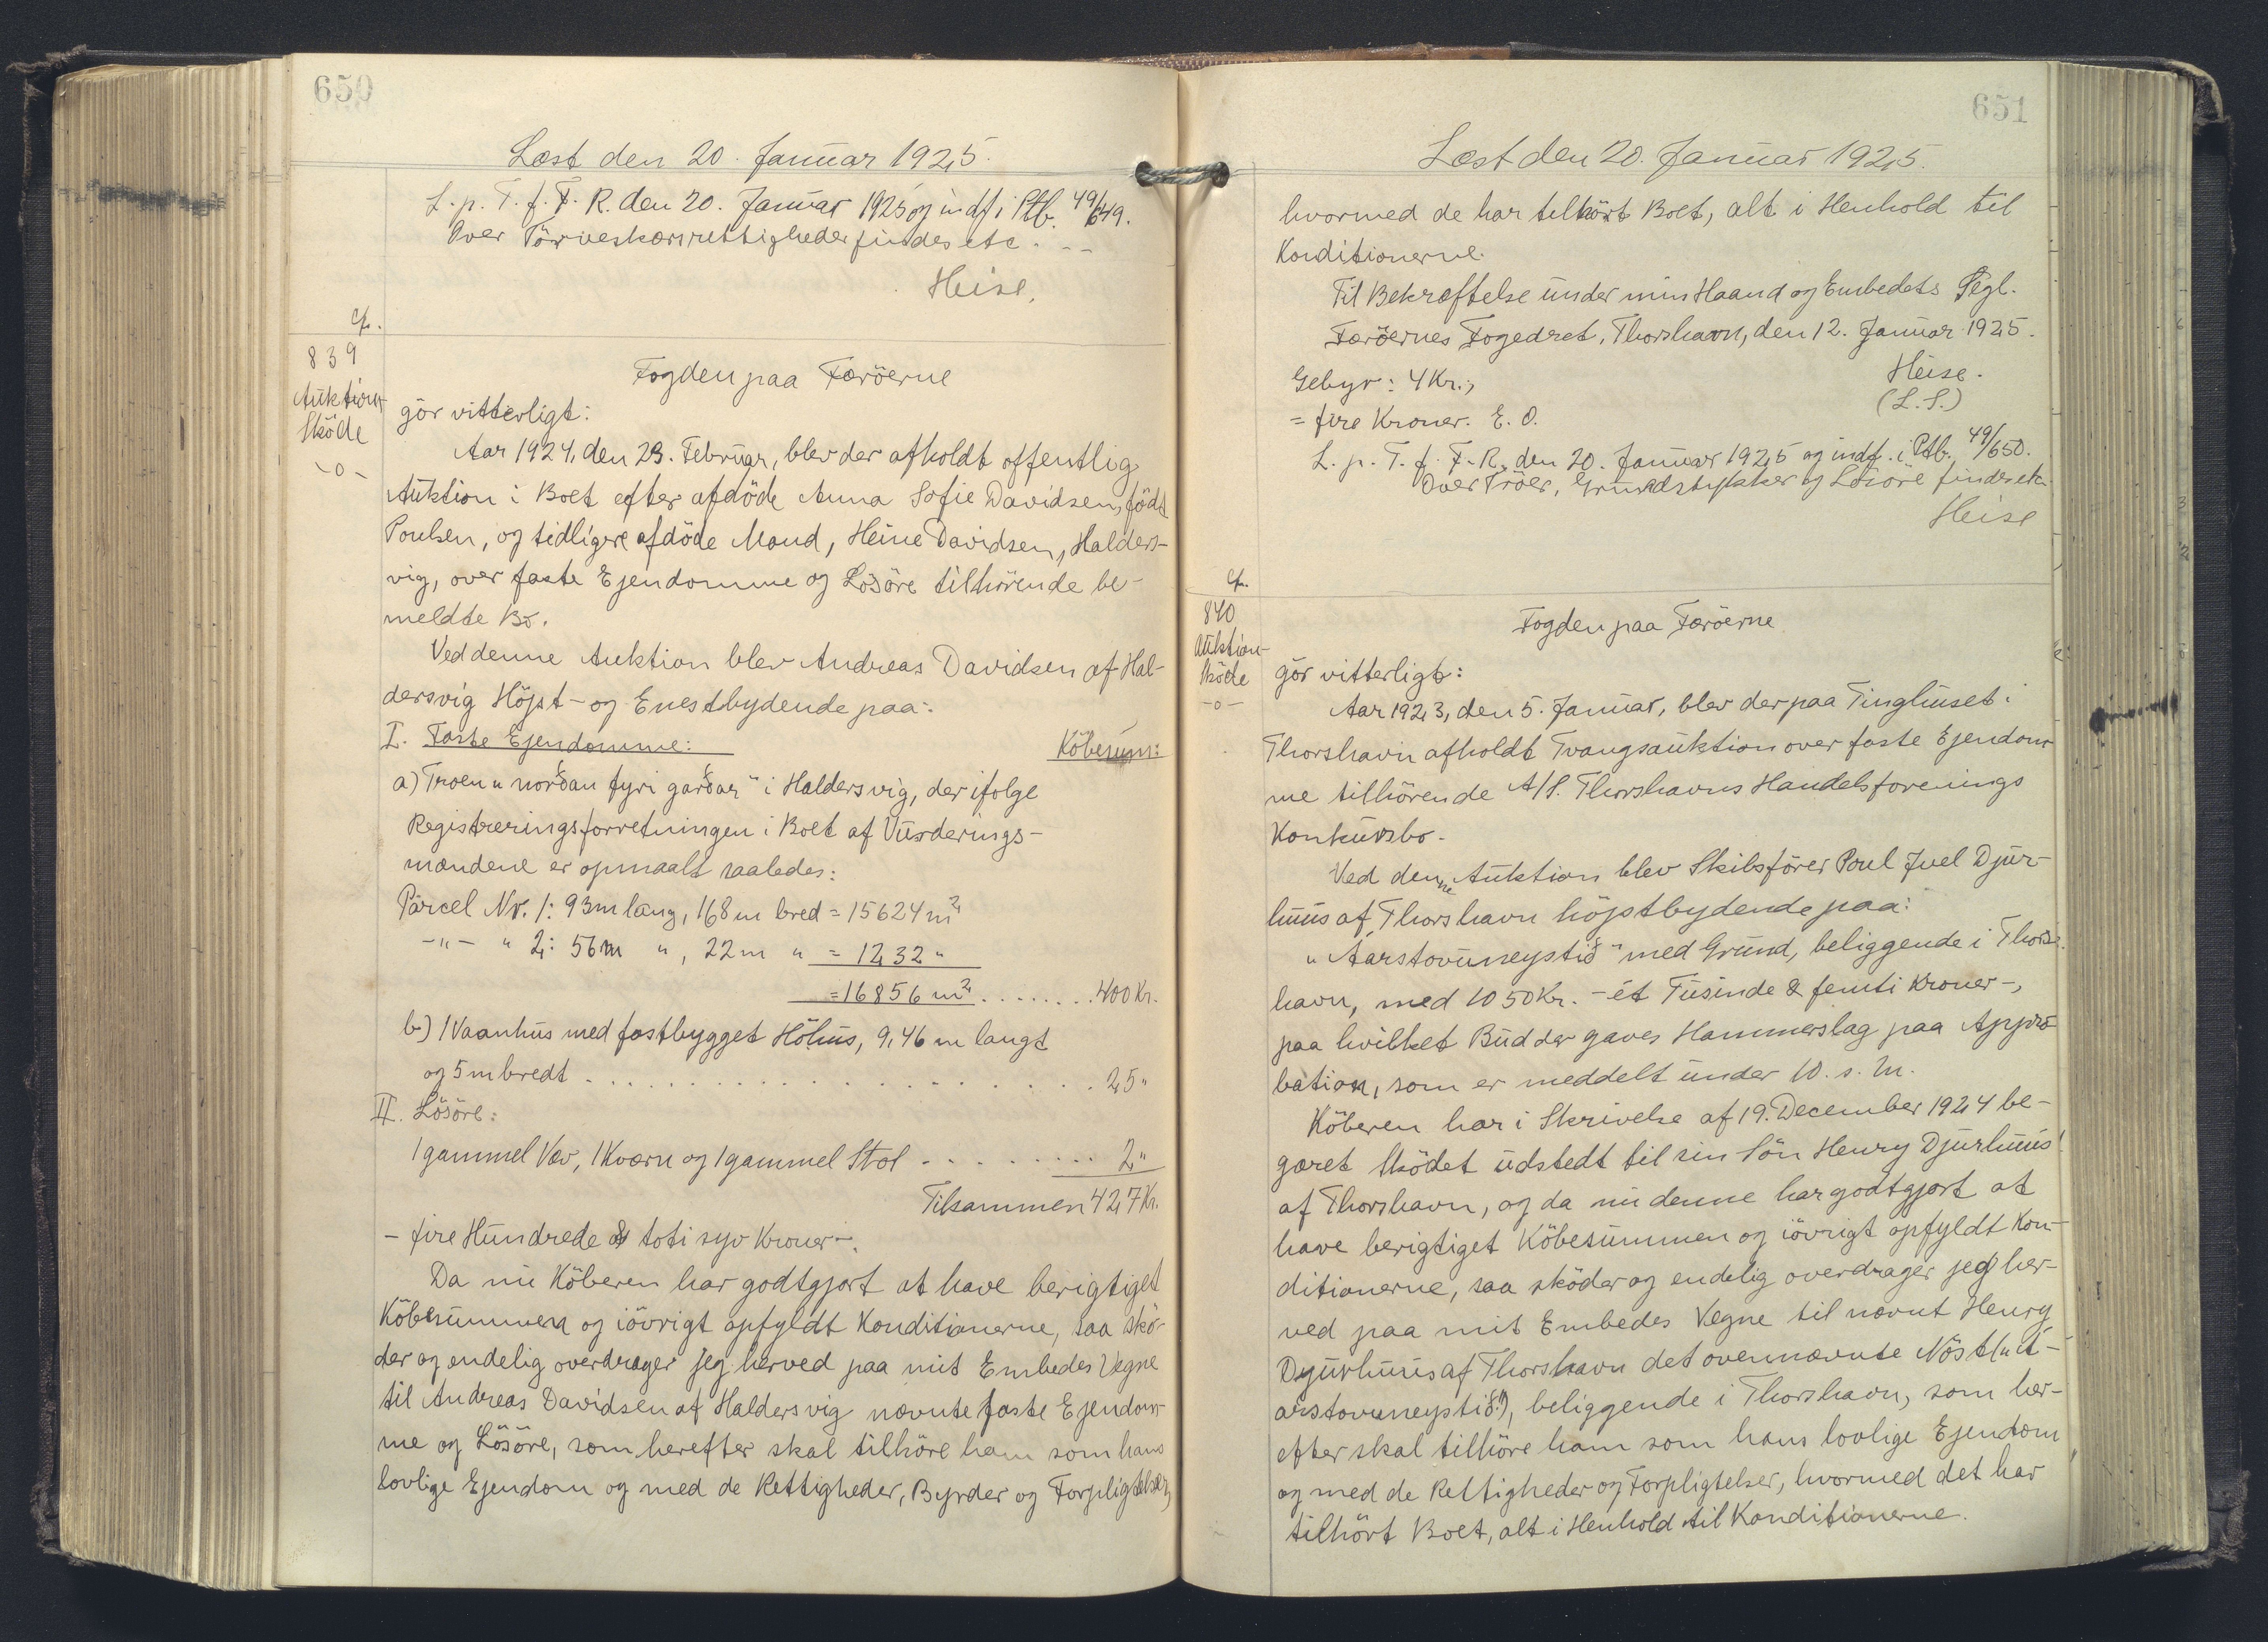 650
Læst den 20. Januar 1925.
L. p. T. f. F. R. den 20. Januar 1925 og indf. i Ptb. 49/649.
Over Törveskærsrettigheder findes etc. - -
Heise.
cf.
839
Auktions-
Sköde
-o-
Fogden paa Færöerne
gör vitterligt:
Aar 1924, den 23. Februar, blev der afholdt offentlig
Auktion i Boet efter afdöde Anna Sofie Davidsen, född
Poulsen, og tidligere afdöde Mand, Heine Davidsen, Halders-
vig, over faste Ejendomme og Lösöre tilhörende be-
meldte Bo.
Ved denne Auktion blev Andreas Davidsen af Hal-
dersvig Höjst- og Enestbydende paa:
I. Faste Ejendomme: Köbesum:
a) Troen „norðan fyri garðar" i Haldersvig, der ifolge
Registreringsforretningen i Boet af Vurderings-
mændene er opmaalt saaledes:
Parcel Nr. 1: 93m lang, 168 m bred = 15624 m²
-"- " 2: 56m ", 22m " = 1232 "
= 16856 m² ........ 400 Kr.
b) 1 Vaanhus med fastbygget Höhus, 9,46 m langt
og 5 m bredt . . . . . . . . . . . . . . . . . . 25 "
II. Lösöre:
1 gammel Væv, 1 Kværn og 1 gammel Stol . . . . . . . . . 2 "
Tilsammen 427 Kr.
- fire Hundrede & toti syv Kroner -.
Da nu Köberen har godtgjort at have berigtiget
Köbesummen og iövrigt opfyldt Konditionerne, saa skö-
der og endelig overdrager jeg herved paa mit Embedes Vegne
til Andreas Davidsen af Haldersvig nævnte faste Ejendom-
me og Lösöre, som herefter skal tilhöre ham som hans
lovlige Ejendom og med de Rettigheder, Byrder og Forpligtelser,
651
Læst den 20. Januar 1925.
hvormed de har tilhört Boet, alt i Henhold til
Konditionerne.
Til Bekræftelse under min Haand og Embedets Segl.
Færöernes Fogedret, Thorshavn, den 12. Januar 1925.
Gebyr: 4 Kr., Heise.
= fire Kroner. E. O. (L. S.)
L. p. T. f. F. R. den 20. Januar 1925 og indf. i Ptb. 49/650.
Over Tröer, Grundstykker og Lösöre findes etc.
Heise
cf.
840
Auktion-
sköde
-o-
Fogden paa Færöerne
gör vitterligt:
Aar 1923, den 5. Januar, blev der paa Tinghuset i
Thorshavn afholdt Tvangsauktion over faste Ejendom-
me tilhörende A/S. Thorshavns Handelsforenings
Konkursbo.
Ved denne Auktion blev Skibsförer Poul Juel Djur-
huus af Thorshavn höjstbydende paa:
„Áarstovuneystið" med Grund, beliggende i Thors-
havn, med 1050 Kr. - ét Tusinde & femti Kroner -,
paa hvilket Bud der gaves Hammerslag paa Appro-
bation, som er meddelt under 10. s. M.
Köberen har i Skrivelse af 19. December 1924 be-
gæret Sködet udstedt til sin Sön Henry Djurhuus
af Thorshavn, og da nu denne har godtgjort at
have berigtiget Köbesummen og iövrigt opfyldt Kon-
ditionerne, saa sköder og endelig overdrager jeg her-
ved paa mit Embedes Vegne til nævnt Henry
Djurhuus af Thorshavn det ovennævnte Nöst („Á-
arstovuneystið"), beliggende i Thorshavn, som her-
efter skal tilhöre ham som hans lovlige Ejendom
og med de Rettigheder og Forpligtelser, hvormed det har
tilhört Boet, alt i Henhold til Konditionerne.